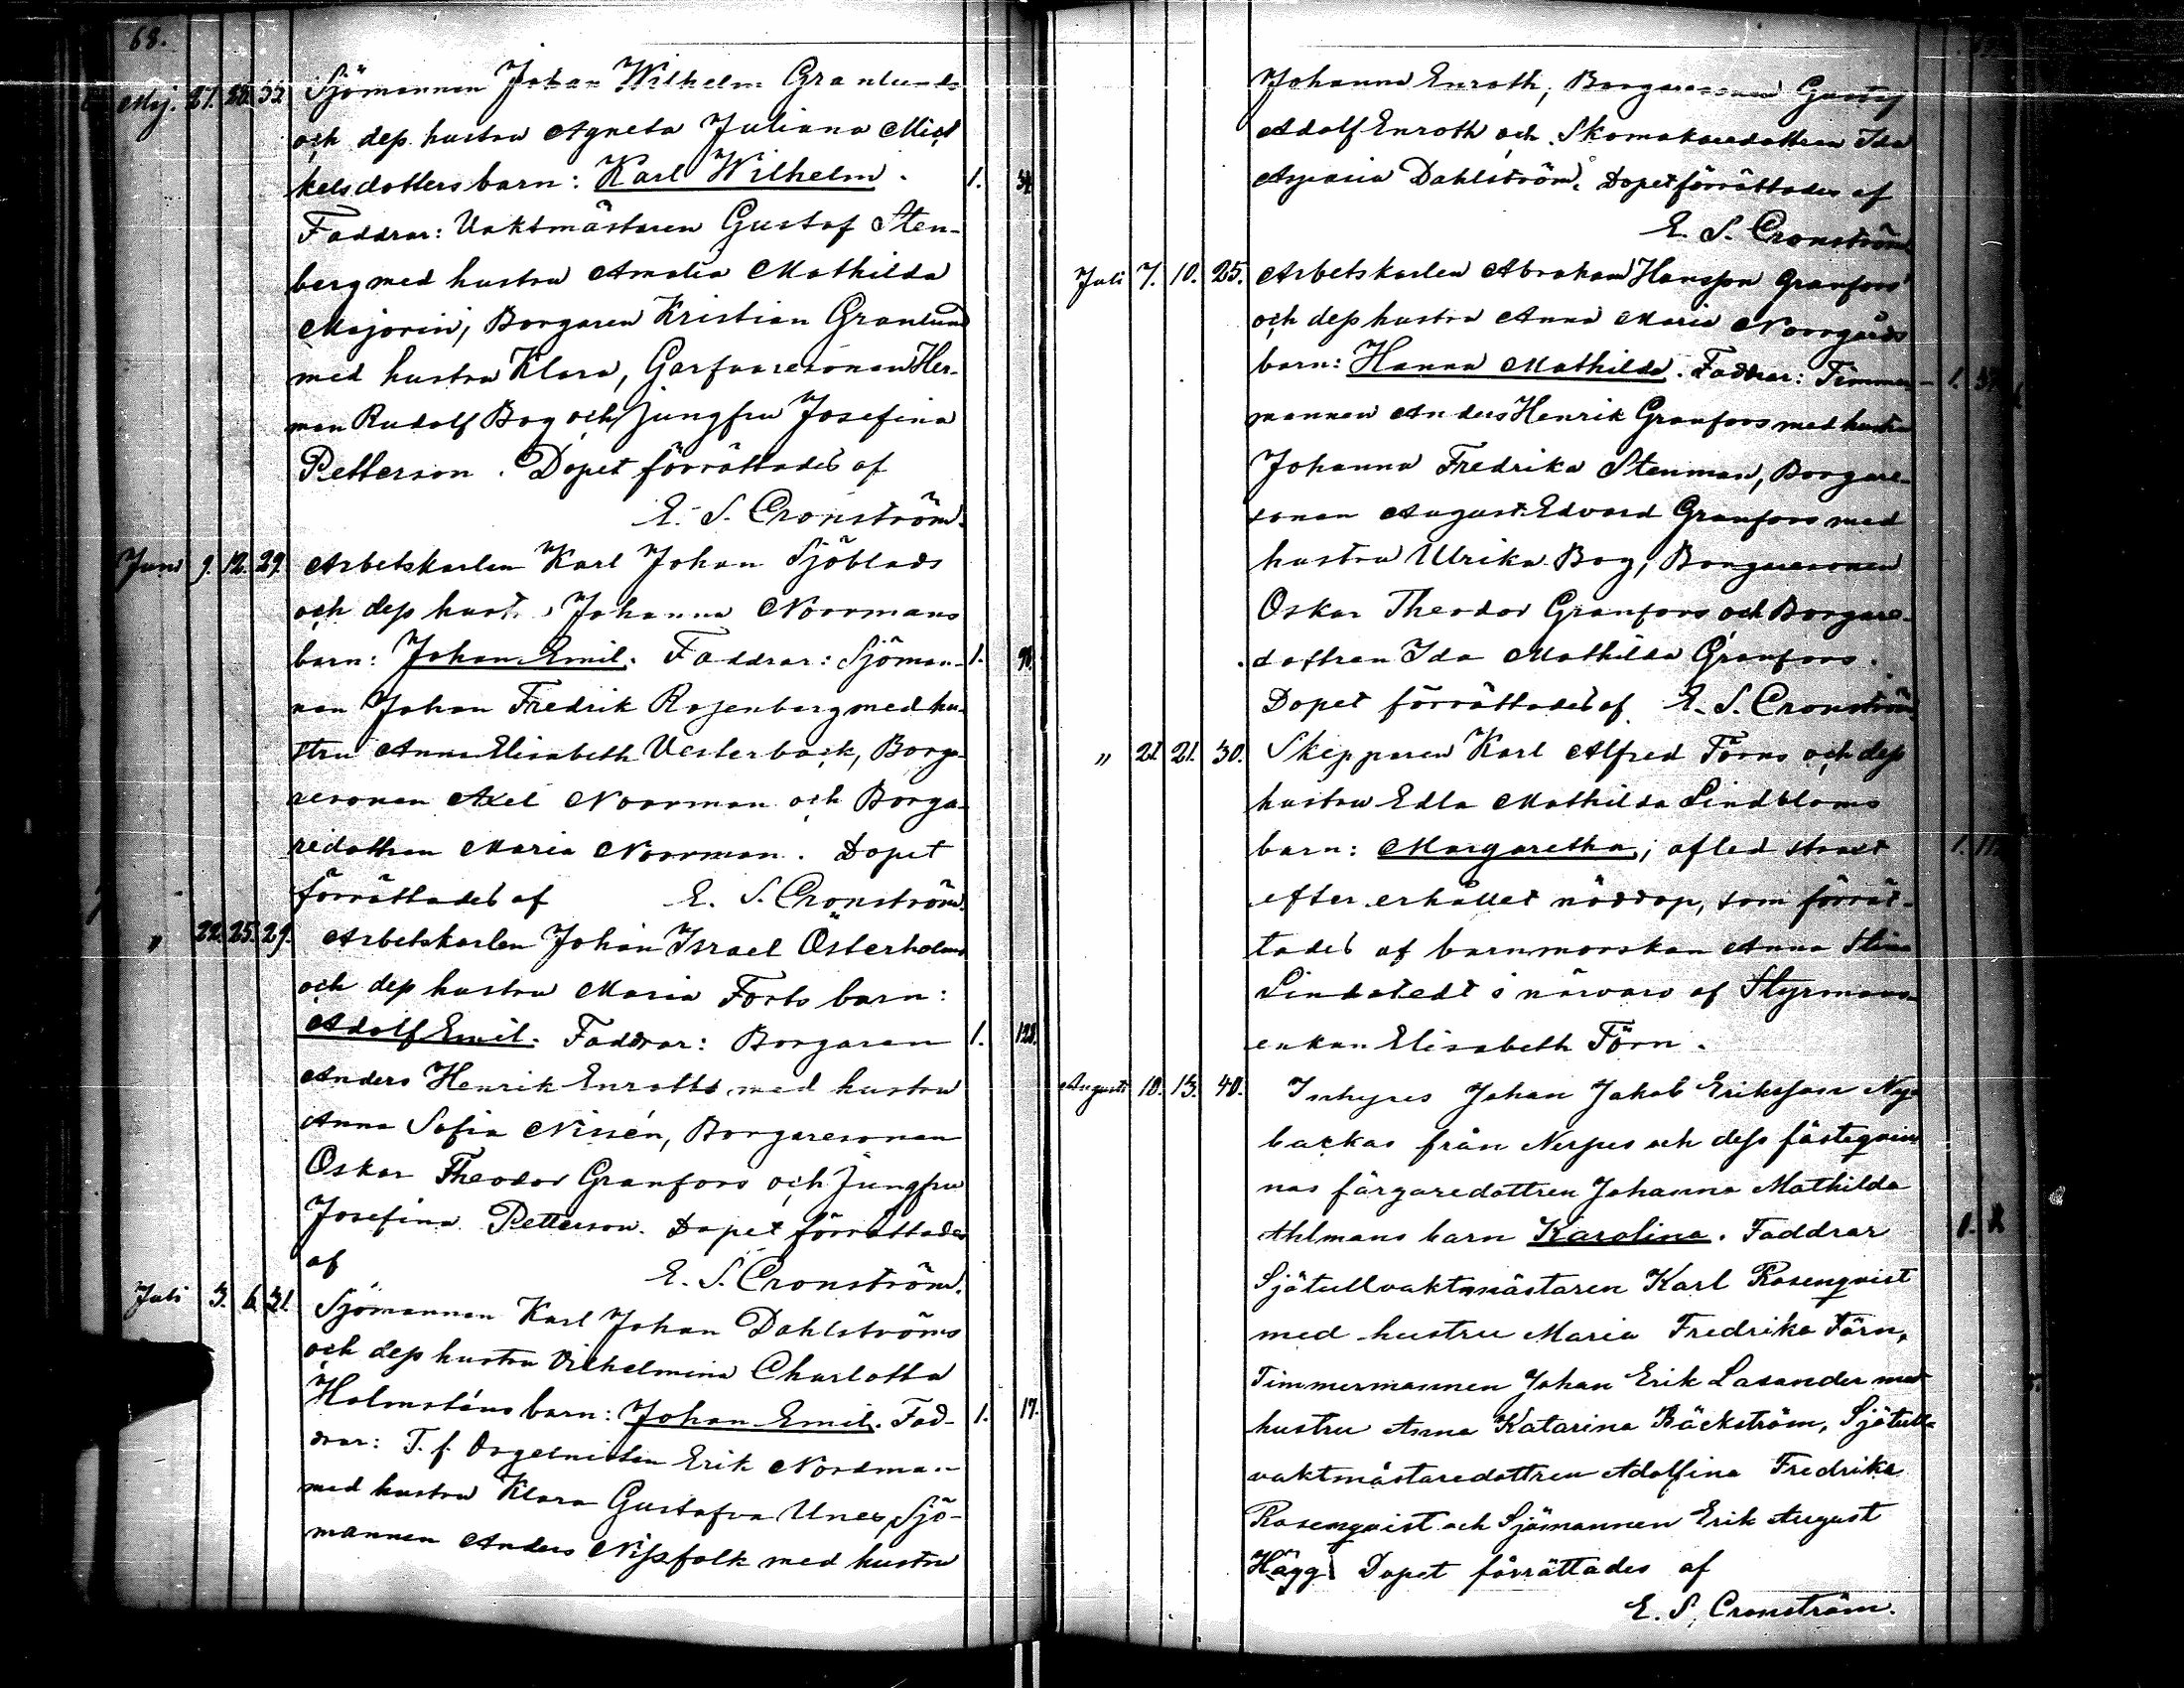 68.
Maj. 27. 28. 33 Sjömannen Johan Wilhelm Granlunds
och dess hustru Agneta Juliana Mick
kelsdotters barn: Karl Wilhelm. 1. 34.
Faddrar: Vaktmästaren Gustaf Sten-
berg med hustru Amalia Mathilda
Majorin, Borgaren Kristian Granlund
med hustru Klara, Garfvaresonen Her-
man Rudolf Bog och jungfru Josefina
Petterson. Dopet förrättades af
E. S. Cronström.
Juni 9. 12. 29. Arbetskarlen Karl Johan Sjöblads
och dess hust. Johanna Noormans
barn: Johan Emil. Faddrar: Sjöman- 1. 90.
nen Johan Fredrik Rosenberg med hu-
stru Anna Elisabeth Vesterback, Borga-
resonen Axel Noorman och Borga-
redottren Maria Noorman. Dopet
förrättades af E. S. Cronström.
" 22. 25. 29. Arbetskarlen Johan Israel Österholms
och dess hustru Maria Forts barn:
Adolf Emil. Faddrar: Borgaren 1. 128.
Anders Henrik Enroth med hustru
Anna Sofia Nissén, Borgaresonen
Oskar Theodor Granfors och Jungfru
Josefina Petterson. Dopet förrättades
af E. S. Cronström.
Juli 3. 6. 31. Sjömannen Karl Johan Dahlströms
och dess hustru Vilhelmina Charlotta
Holmsténs barn: Johan Emil. Fad- 1. 17.
drar: T. f. Orgelnisten Erik Nordman
med hustru Klara Gustafva Unes, Sjö-
mannen Anders Nissfolk med hustru
Johanna Enroth, Borgaresonen Gustaf
Adolf Enroth och Skomakaredottren Ida
Aspasia Dahlström. Dopet förrättades af
E. S. Cronström
Juli 7. 10. 25. Arbetskarlen Abraham Hansson Granfors'
och dess hustru Anna Maria Norrgårds
barn: Hanna Mathilda. Faddrar: Timmer- 1.
mannen Anders Henrik Granfors med hustru
Johanna Fredrika Stenman, Borgare-
sonen August Edvard Granfors med
hustru Ulrika Bog, Borgaresonen
Oskar Theodor Granfors och Borgare-
dottren Ida Mathilda Granfors.
Dopet förrättades af E. S. Cronström
" 21. 21. 30. Skepparen Karl Alfred Förns och dess
hustru Edla Mathilda Lindbloms
barn: Margaretha; afled straxt 1. 11.
efter erhållet nöddop, som förrät-
tades af barnmorskan Anna Stina
Lindstedt i närvaro af Styrmans-
enkan Elisabeth Förn.
Augusti 10. 13. 40. Inhyses Johan Jakob Eriksson Ny-
backas från Nerpes och dess fästeqvin
nas färgaredottren Johanna Mathilda
Ahlmans barn Karolina. Faddrar 1.
Sjötullvaktmästaren Karl Rosenqvist
med hustru Maria Fredrika Förn,
Timmermannen Johan Erik Lasander med
hustru Anna Katarina Bäckström, Sjötull-
vaktmästaredottren Adolfina Fredrika
Rosenqvist och Sjömannen Erik August
Hägg. Dopet förrättades af
E. S. Cronström.